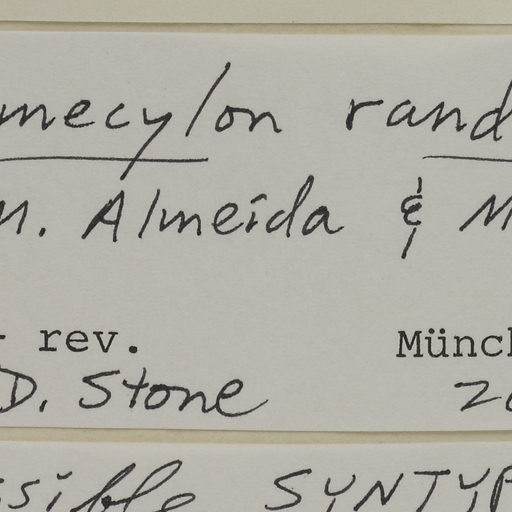 mecylon rand
M. Almeida & M
rev. Münch
D. Stone 20
ssible SYNTYP